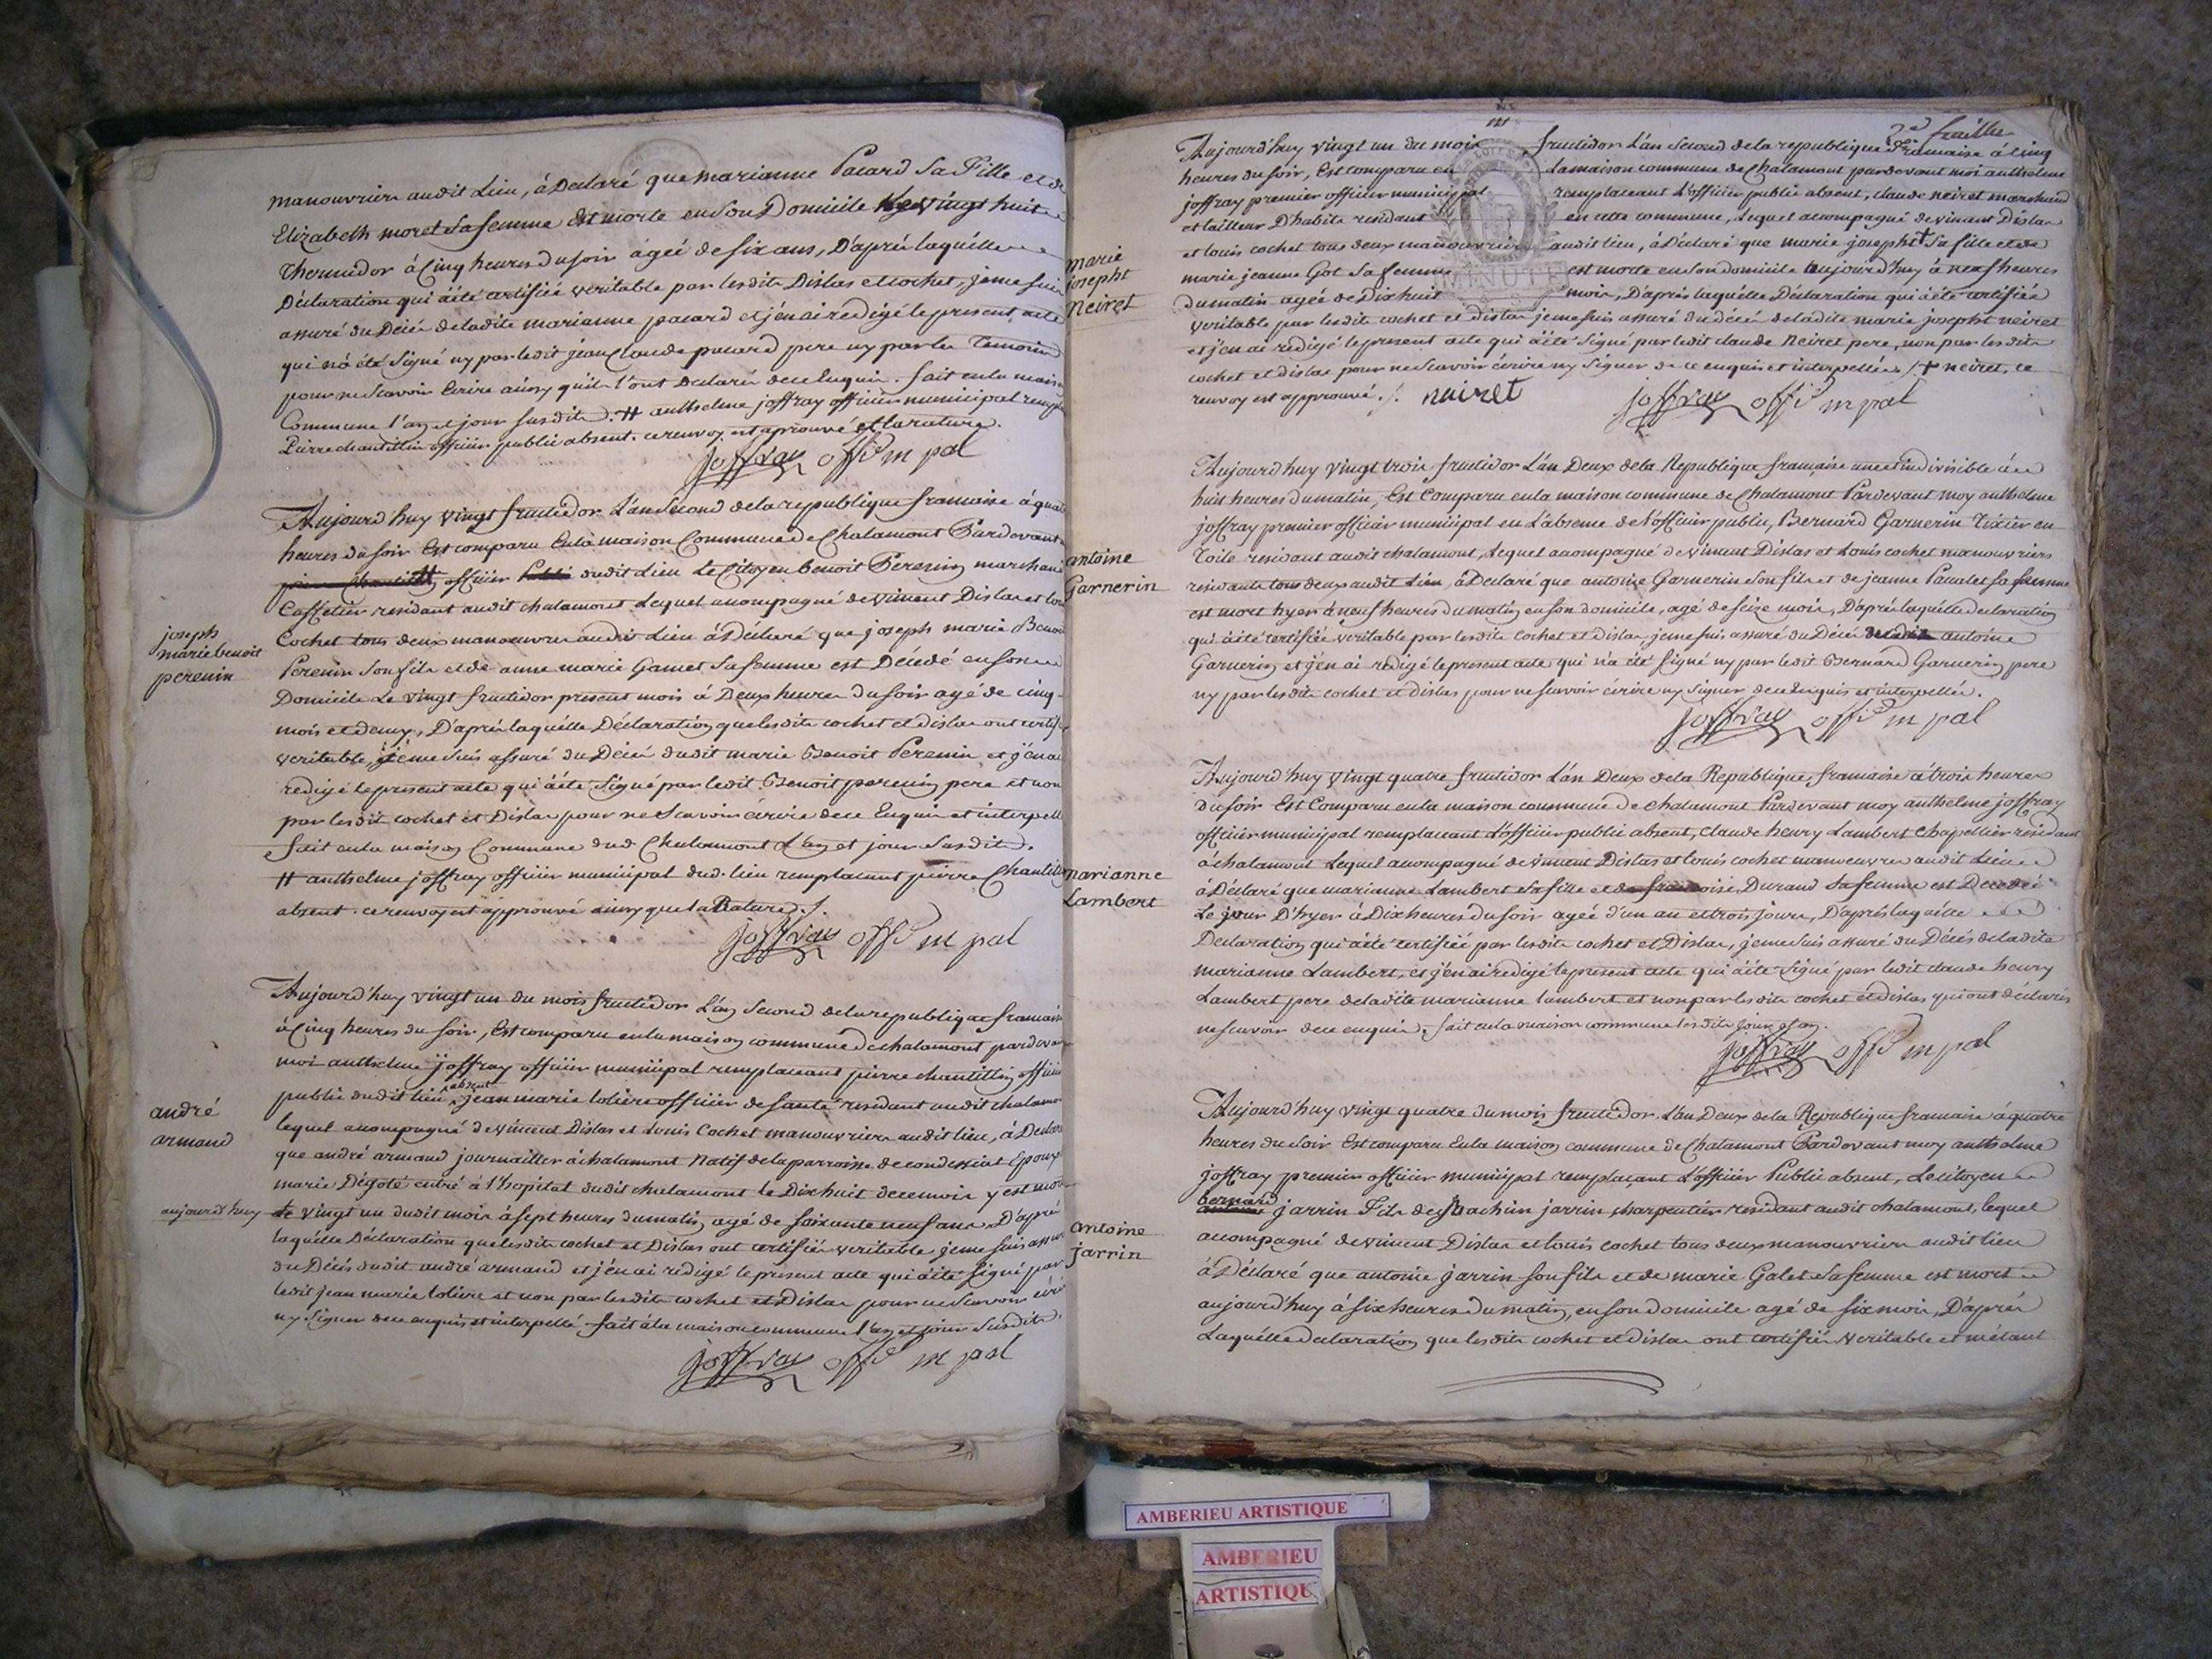 manouvrier audit Lieu, à Declaré que marianne Pacard Sa Fille et de
Elizabeth moret Sa femme Est morte en son Domicile vingt huit
Thermidor à Cinq heures Du soir agée de six ans, D'après laquelle
Déclaration qui à été certifiée veritable par lesdits Dislas et Cochet, je me suis
assuré du Décès de ladite marianne pacard et j'en ai redigé le present acte
qui n'a été Signé ny par ledit jean Claude pacard pere ny par les Temoins
pour ne Scavoir Ecrire ainsy qu'ils l'ont Declaré de ce Enquis. fait en la maison
Commune l'an et jour susdits. # anthelme joffray officier municipal
Pierre chantillin officier public absent. ce renvoy est aprouvé et la rature.
joffray offier m pal
joseph
marie benoit
perenin
Aujourd'huy vingt fructidor L'an Second de la republique francaise à quatre
heures du soir Est comparu En la maison Commune de Chalamont Pardevant
officier dudit Lieu Le Citoyen benoit Perenin marchand
Caffetier residant audit chalamont Lequel accompagné de vincent Dislas et Louis
Cochet tous deux manouvriers audit Lieu à Déclaré que joseph marie Benoit
Perenin Son fils et de anne marie Gamet Sa femme est Décédé en son
Domicile Le vingt fructidor present mois à Deux heures Du soir agé de cinq
mois et demy, D'après laquelle Déclaration que lesdits cochet et dislas ont certifié
veritable, je me suis assuré du Décès dudit marie Benoit Perenin et j'en ai
redigé le present acte qui à été Signé par ledit Benoit perenin pere et non
par lesdits cochet et Dislas pour ne Scavoir écrire de ce Enquis et interpellé
fait en la maison Commune dud Chalamont L'an et jour Susdits.
# anthelme joffray officier municipal dud. lieu remplacant pierre Chantillin
absent. ce renvoy est approuvé ainsy que la Rature ./.
joffray offier m pal
andré
armand
Aujourd'huy vingt un du mois fructidor L'an Second de la republique francaise
à Cinq heures du soir, Est comparu en la maison commune de chalamont pardevant
moi anthelme joffray officier municipal remplacant pierre chantillin officier
public dudit lieu absent jean marie loliere officier de santé residant audit chalamont
lequel accompagné de vincent Dislas et Louis Cochet manouvriers audit lieu, à Declaré
que andré armand journallier à chalamont Natif de la parroisse de condessiat Epoux
marie Degote entré à l'hopital dudit chalamont le Dix huit de ce mois y est mort
aujourd'huy vingt un dudit mois à sept heures du matin agé de soixante neuf ans D'après
laquelle Déclaration que lesdits cochet et Dislas ont certifiée veritable je me suis assuré
du Décès dudit andré armand et j'en ai redigé le present acte qui à été Signé par
ledit jean marie loliere et non par lesdits cochet et Dislas pour ne Scavoir écrire
ny Signer de ce enquis et interpellé fait à la maison commune l'an et jour Susdits.
joffray offier m pal
121
2e feuille
marie
josepht
Neiret
Aujourd'huy vingt un du mois fructidor L'an Second de la republique francaise à cinq
heures du soir, Est comparu en la maison commune de Chalamont pardevant moi anthelme
joffray premier officier municipal remplacant L'officier public absent, claude neiret marchand
et tailleur D'habits residant en cette commune, Lequel accompagné de vincent Dislas
et louis cochet tous deux manouvriers audit lieu, à Declaré que marie josepht + Sa fille et de
marie jeanne Got Sa femme est morte en son domicile aujourd'huy à neuf heures
Du matin agée de Dix huit mois, D'après laquelle Déclaration qui à été certifiée
veritable par lesdits cochet et dislas je me suis assuré du décès de ladite marie josepht neiret
et j'en ai redigé le present acte qui à été signé par ledit claude Neiret pere, non par lesdits
cochet et dislas pour ne Scavoir écrire ny Signer de ce enquis et interpellés ./ + neiret, ce
renvoy est approuvé ./. neiret joffray offier m pal
MINUTE
antoine
Garnerin
Aujourd'huy vingt trois fructidor L'an Deux de la Republique francaise une et indivisible à
huit heures du matin, Est Comparu en la maison commune de Chalamont Pardevant moy anthelme
joffray premier officier municipal en L'absence de l'officier public, Bernard Garnerin Tixier en
Toile residant audit chalamont, Lequel accompagné de vincent Dislas et Louis cochet manouvriers
residants tous deux audit Lieu, à Declaré que antoine Garnerin Son fils et de jeanne Pacalet Sa femme
est mort hyer à neuf heures du matin en son domicile, agé de seize mois, D'après laquelle declaration
qui à été certifiée veritable par lesdits cochet et dislas, je me suis assuré du Décès antoine
Garnerin et j'en ai redigé le present acte qui n'a été signé ny par ledit Bernard Garnerin pere
ny par lesdits cochet et dislas pour ne scavoir écrire ny signer de ce Enquis et interpellés.
joffray offier m pal
marianne
Lambert
Aujourd'huy vingt quatre fructidor L'an Deux de la Republique, francaise à trois heures
Du soir Est Comparu en la maison commune de Chalamont Pardevant moy anthelme joffray
officier municipal remplacant L'officier public absent, claude henry Lambert Chapellier residant
à chalamont Lequel accompagné de vincent Dislas et louis cochet manouvriers audit Lieu
à Déclaré que marianne Lambert Sa fille et de francoise Durand Sa femme est Decedée
Le jour D'hyer à Dix heures du soir agée d'un an et trois jours, D'après laquelle
Declaration qui à été certifiée par lesdits cochet et Dislas, je me suis assuré du Décès de ladite
marianne Lambert, et j'en ai redigé le present acte qui à été signé par ledit claude henry
Lambert pere de ladite marianne lambert et non par lesdits cochet et dislas qui ont déclarés
ne scavoir de ce enquis. fait en la maison commune lesdits jour et an.
joffray offier m pal
antoine
jarrin
Aujourd'huy vingt quatre du mois fructidor L'an Deux de la Republique francaise à quatre
heures du soir Est comparu En la maison commune de Chalamont Pardevant moy anthelme
joffray premier officier municipal remplaçant L'officier Public absent, Le citoyen
bernard jarrin Fils de joachim jarrin charpentier residant audit chalamont, lequel
accompagné de vincent Dislas et louis cochet tous deux manouvriers audit lieu
à Déclaré que antoine jarrin son fils et de marie Galet Sa femme est mort
aujourd'huy à six heures du matin, en son domicile agé de six mois, D'après
Laquelle declaration que lesdits cochet et dislas ont certifiée veritable et m'étant
AMBERIEU ARTISTIQUE
AMBERIEU
ARTISTIQUE